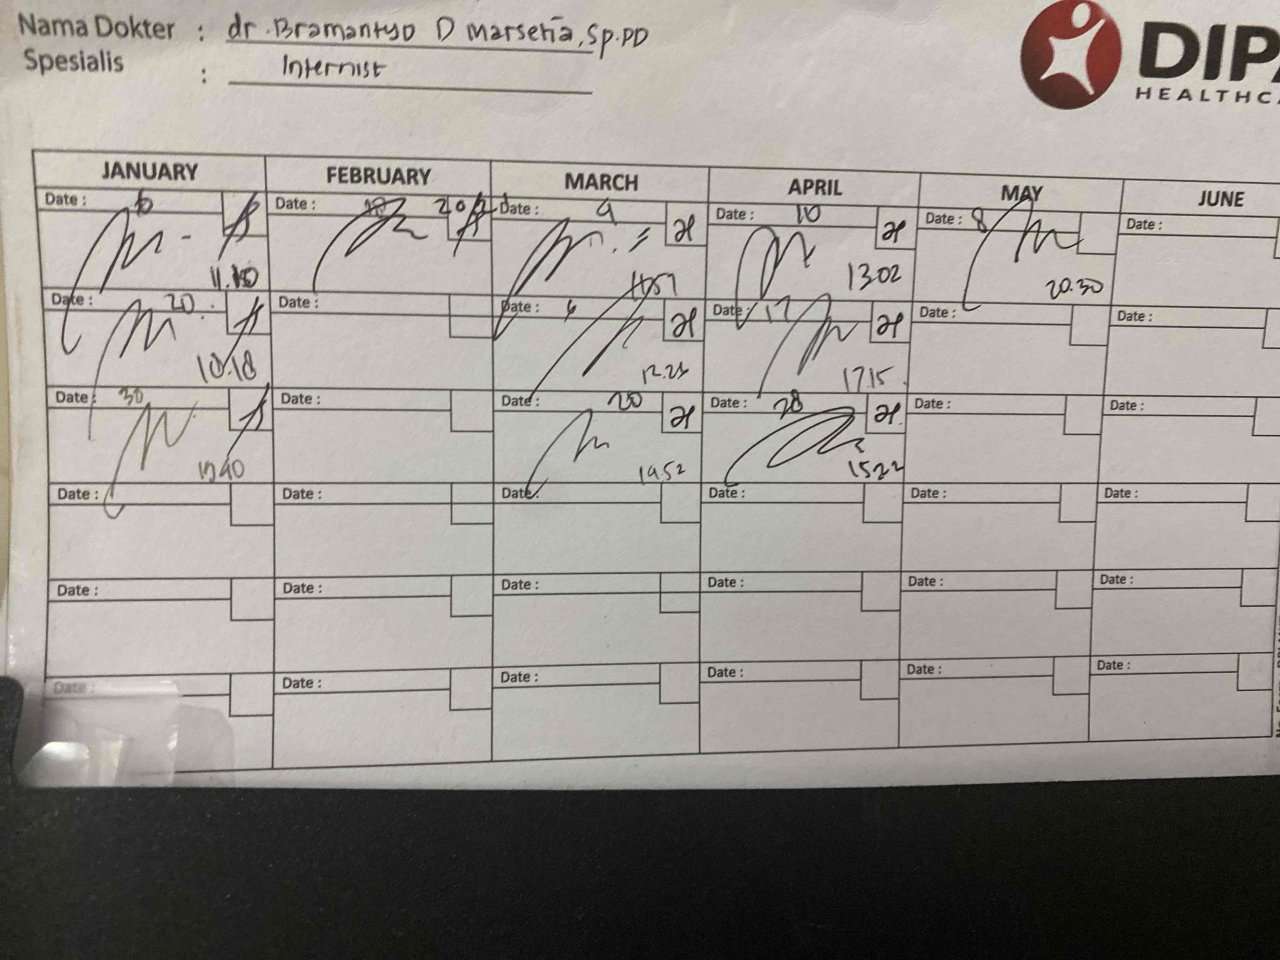 Nama Dokter : dr. Bramantyo D Marsetia, Sp.PD
Spesialis : Internist
DIPA
HEALTHCA
JANUARY FEBRUARY MARCH APRIL MAY JUNE
Date : 6 Date : Date : 9 Date : 10 Date : 8 Date :
13.02 20.30
Date : 20 Date : Date : 6 Date : 17 Date : Date :
10.18 12.23 17.15
Date : 30 Date : Date : 20 Date : 28 Date : Date :
19.52 15.22
Date : Date : Date : Date : Date : Date :
Date : Date : Date : Date : Date : Date :
Date : Date : Date : Date : Date : Date :